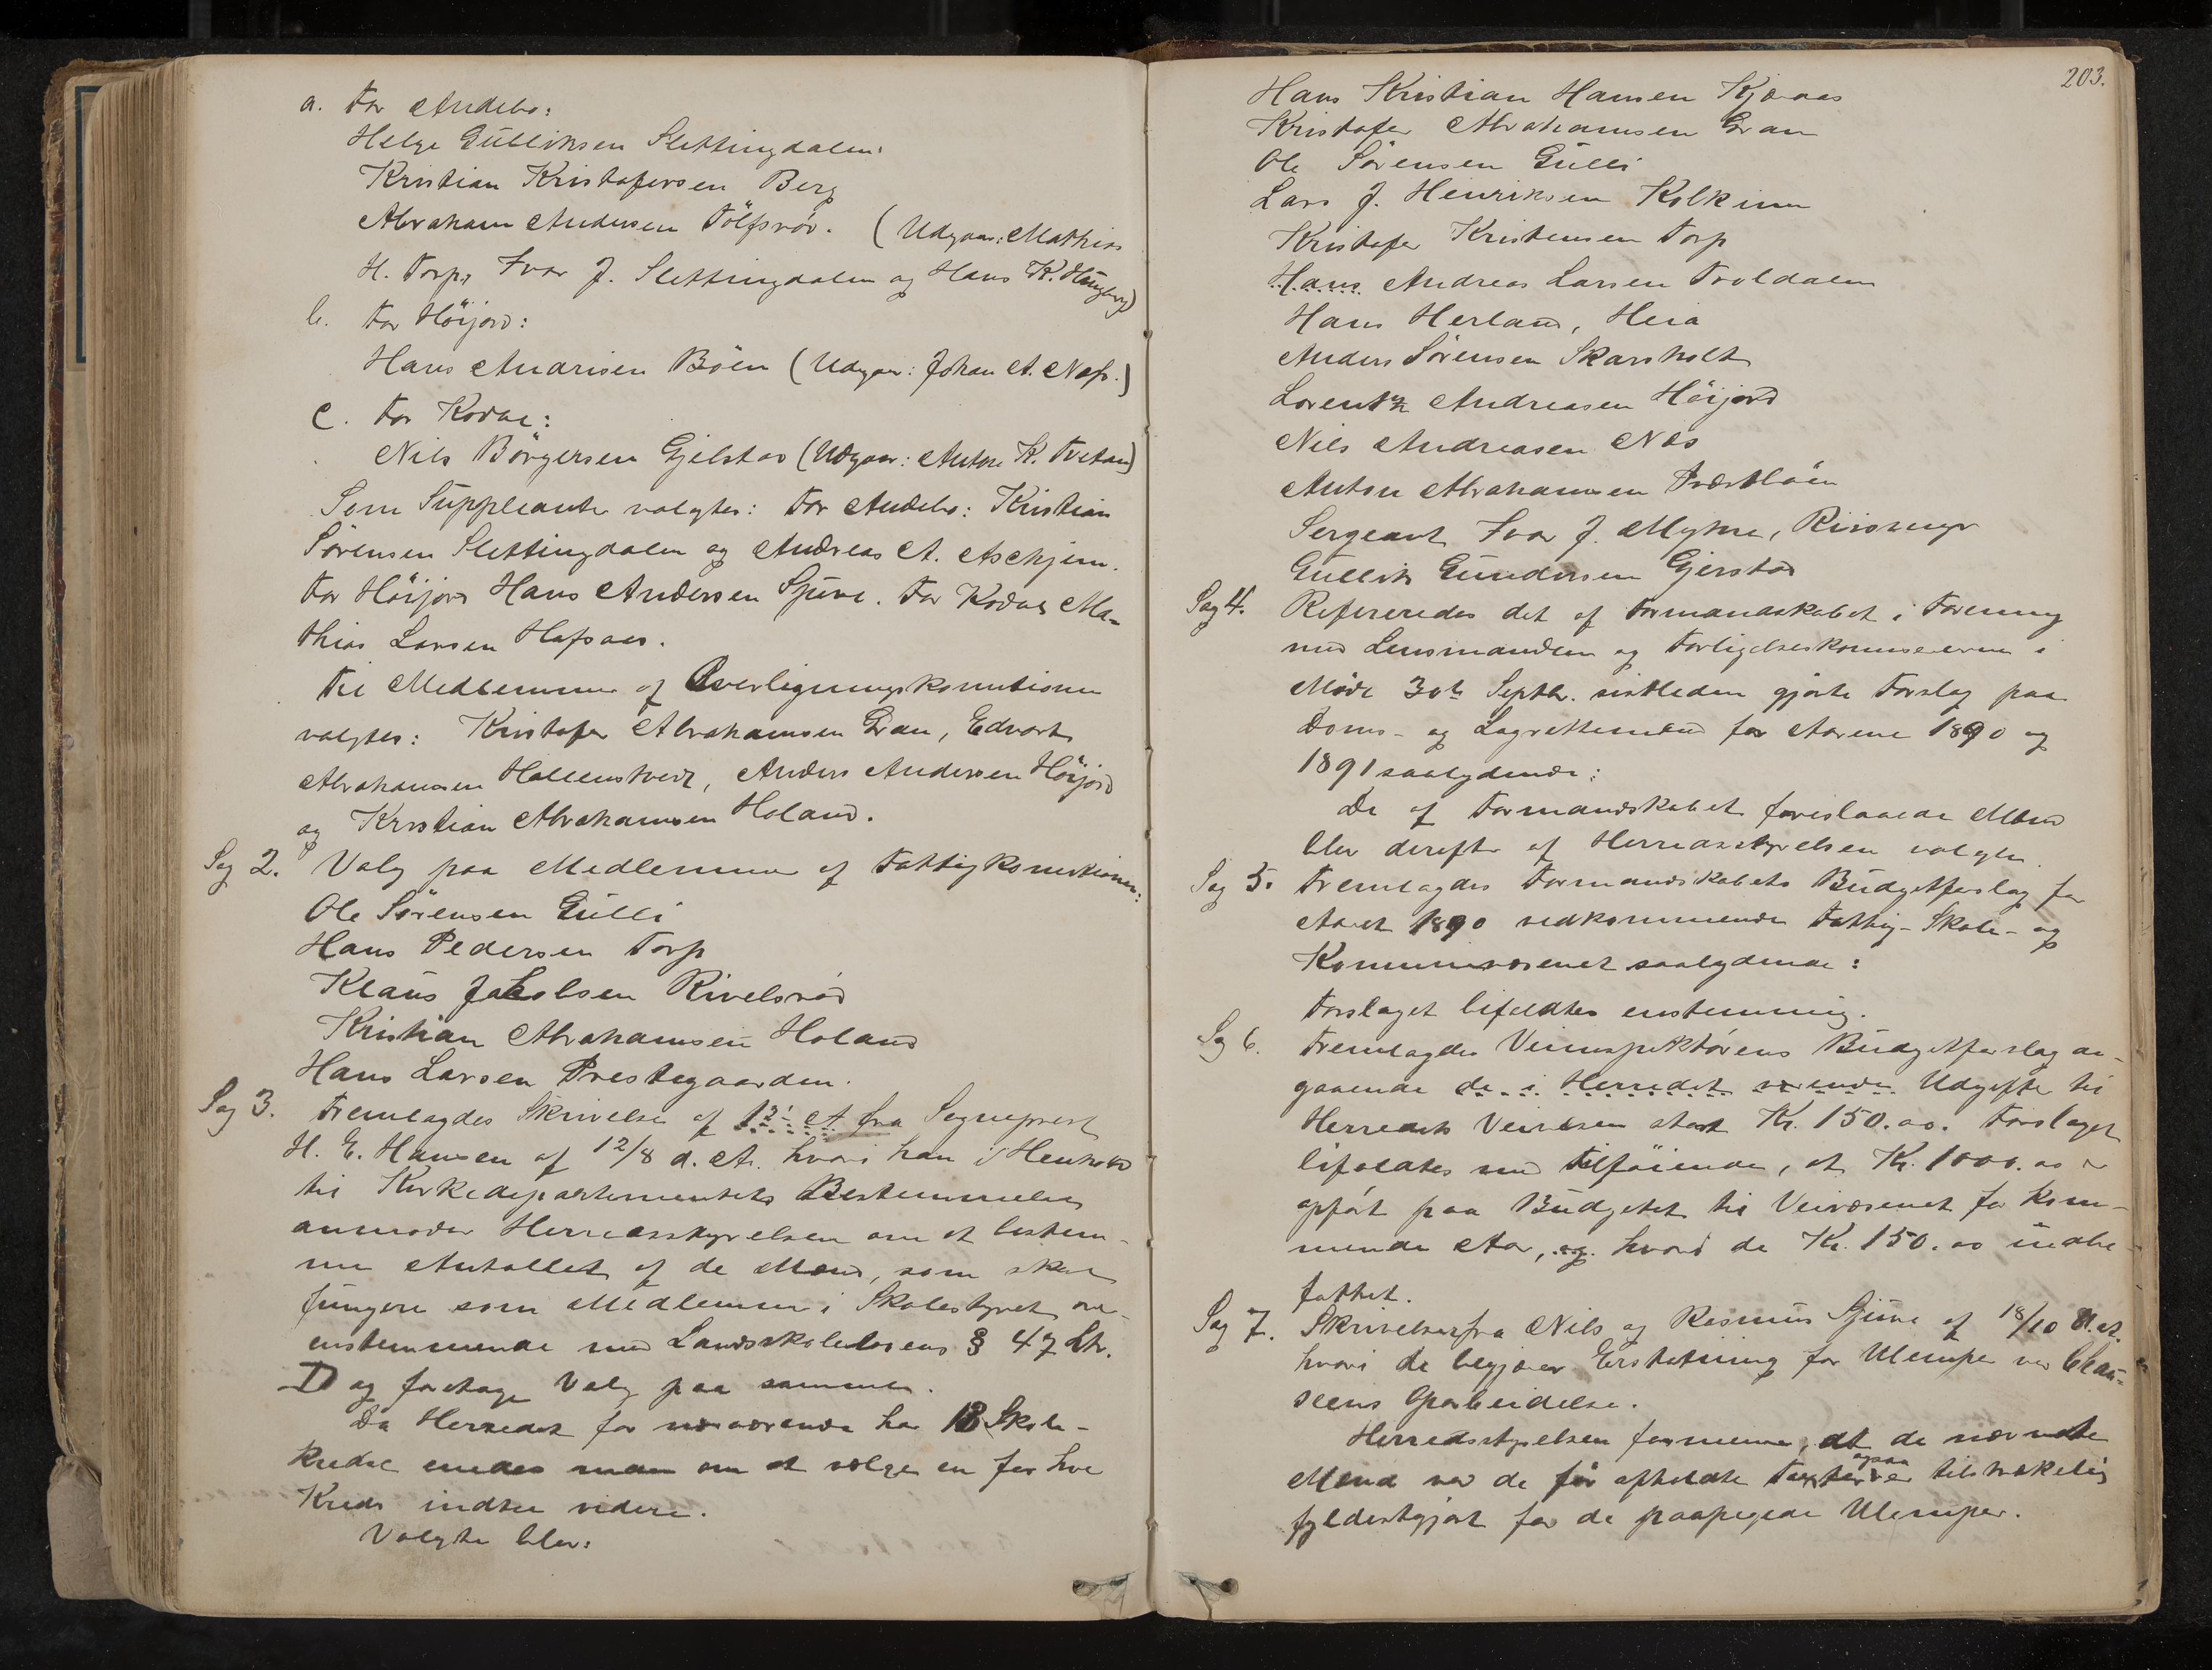 a. For Andebo:
Helge Gulliksen Slettingdalen.
Kristian Kristofersen Berg
Abraham Andersen Tolfsröd. (Udgaar: Mathias
H. Torp, Ivar J. Slettingdalen og Hans K. Haugberg)
b. For Höijord:
Hans Andrisen Böen (Udgaar: Johan A. Næs.)
c. For Kodal:
Nils Börgersen Gjelstad (Udgaar: Anton K. Tvetan)
Som Suppleanter valgtes: For Andebo: Kristian
Sörensen Slettingdalen og Andreas A. Askjem.
For Höijord Hans Andersen Sjuve. For Kodal Ma-
thias Larsen Hafsaas.
Til Medlemmer af Overligningskomitionen
valgtes: Kristofer Abrahamsen Gran, Edvart
Abrahamsen Hallenstvedt, Anders Andersen Höijord
og Kristian Abrahamsen Holand.
Sag 2. Valg paa Medlemmer af Fattigkomitionen:
Ole Sörensen Gulli
Hans Pedersen Torp
Klaus Jakobsen Rivelsröd
Kristian Abrahamsen Holand
Hans Larsen Prestegaarden.
Sag 3. Fremlagdes Skrivelse af fra Sogneprest
H. E. Hansen af 12/8 d. A. hvori han i Henhold
til Kirkedepartementets Bestemmelse
anmoder Herredsstyrelsen om at bestem-
me Antallet af de Mænd, som skal
fungere som Medlemmer i Skolestyret ove-
enstemmende med Landsskolelovens § 47 Litr.
D og foretage Valg paa samme.
Da Herredet for nærværende har 13 Skole-
kredse enedes man om at vælge en for hver
Kreds indtil videre.
Valgte blev:
203.
Hans Kristian Hansen Kjæraas
Kristofer Abrahamsen Gran
Ole Sörensen Gulli
Lars J. Henriksen Kolkinn
Kristofer Kristensen Torp
Hans Andreas Larsen Troldalen
Hans Herland, Heia
Anders Sörensen Skarsholt
Lorentz Andreasen Höijord
Nils Andreasen Næs
Anton Abrahamsen Trærtlöen
Sergeant Ivar J. Myhre,
Gullik Gundersen Gjerstad
Sag 4. Refereredes det af Formandskabet i Forening
med Lensmanden og Forligelseskommissærerne i
Möde 30te Septbr. sistleden gjorte Forslag paa
Doms- og Lagrettemænd for Aarene 1890 og
1891 saalydende:
De af Formandskabet foreslaaede Mænd
blev derefter af Herredsstyrelsen valgte.
Sag 5. Fremlagdes Formandskabets Budgetforslag for
Aaret 1890 vedkommende Fattig- Skole- og
Kommunevæsenet saalydende:
Forslaget bifaldtes enstemmig.
Sag 6. Fremlagdes Veiinspektörens Budgetforslag an-
gaaende de i Herredet værende Udgifter til
Herredets Veivæsen stort Kr. 150.00. Forslaget
bifaldtes med tilföiende, at Kr. 1000.00 er
opfört paa Budgetet til Veivæsenet for kom-
mende Aar, og hvori de Kr. 150.00 indbe-
fattet.
Sag 7. Skrivelse fra Nils og Rasmus Sjuve af 18/10 d. A.
hvori de begjærer Erstatning for Ulemper ved Chau-
seens Oparbeidelse.
Herredsstyrelsen formener, at de nævndte
Mænd ved de för afholdte Taxter ogsaa er tilstrækelig
fyldestgjort for de paapegede Ulemper.